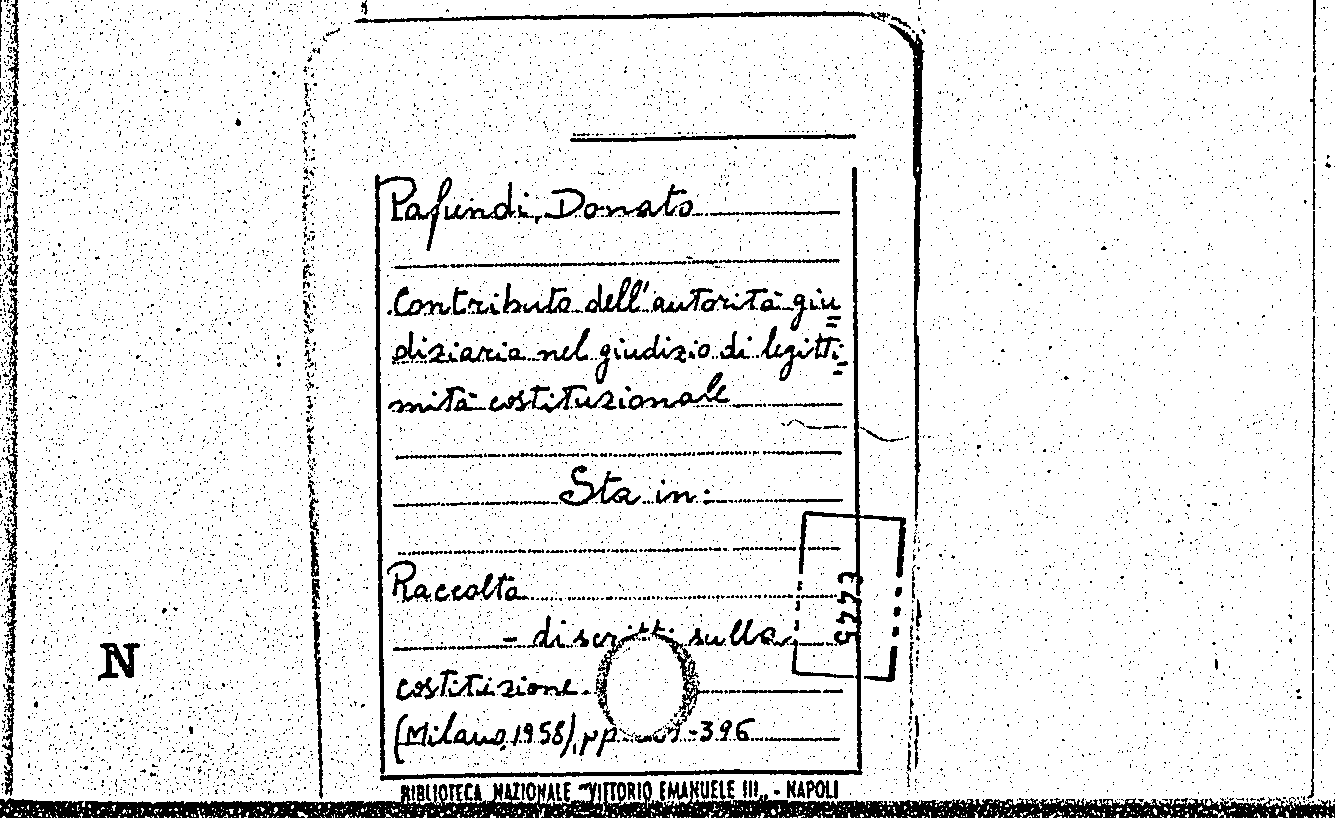 Pafundi, Donato
Contributo dell'autorità giu=
diziaria nel giudizio di legitti=
mità costituzionale
Sta in:
Raccolta
- di scritti sulla
costituzione.
(Milano, 1958), pp. -396
5442
N
BIBLIOTECA NAZIONALE "VITTORIO EMANUELE III„ - NAPOLI